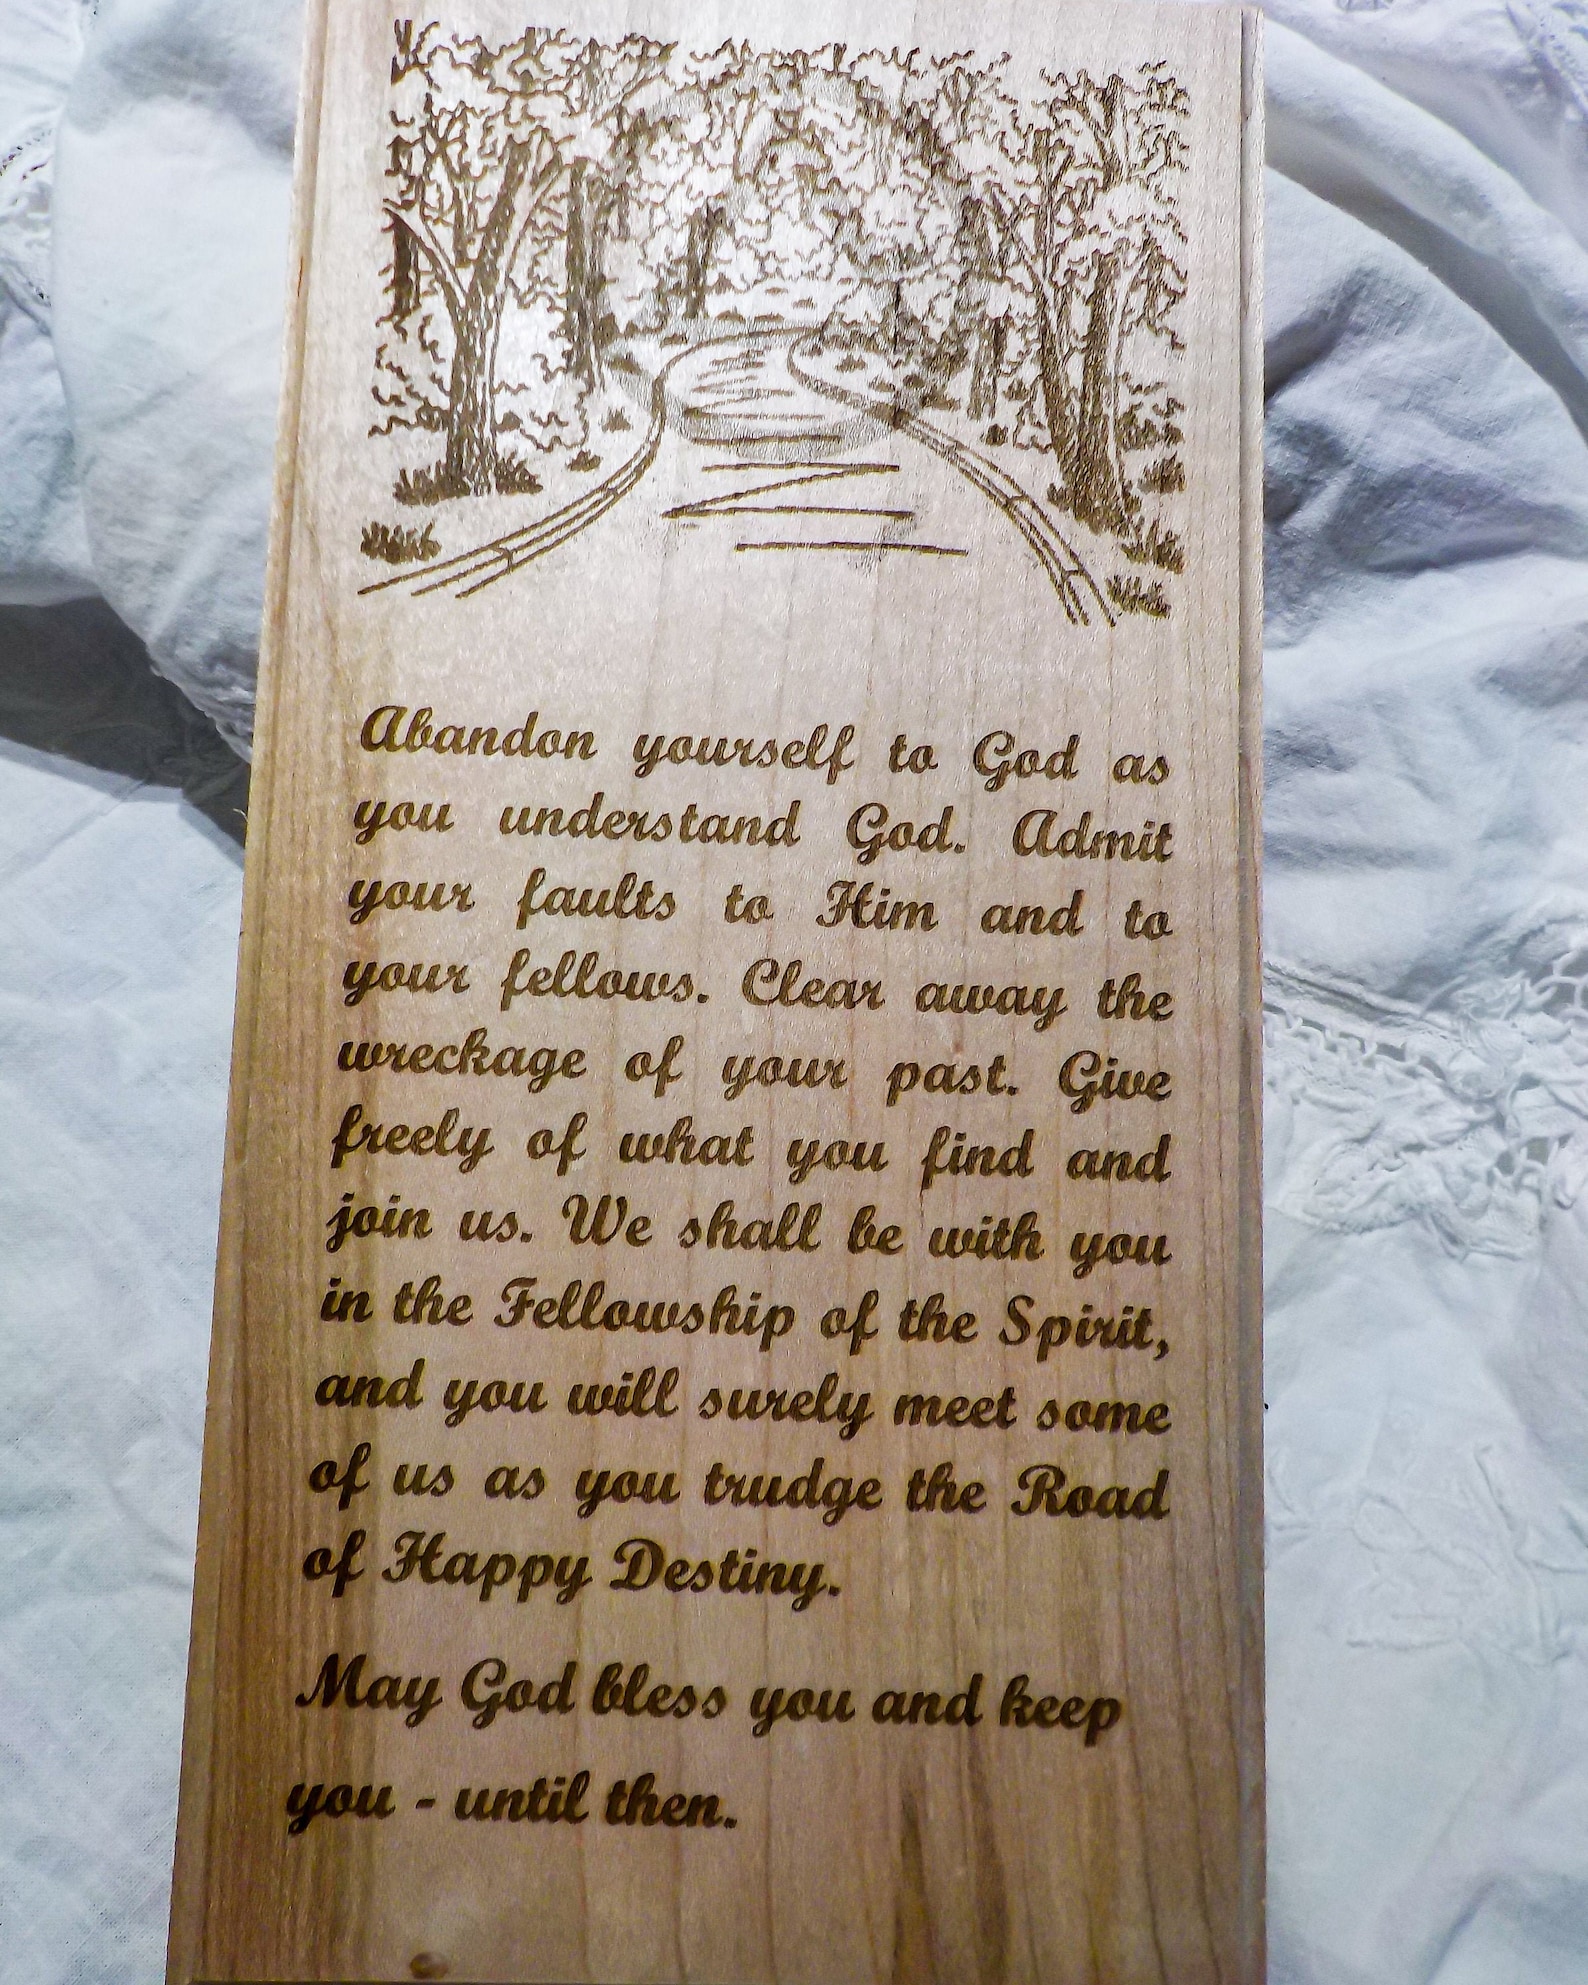 Abandon yourself to God as
you understand God. Admit
your faults to Him and to
your fellows. Clear away the
wreckage of your past. Give
freely of what you find and
join us. We shall be with you
in the Fellowship of the Spirit,
and you will surely meet some
of us as you trudge the Road
of Happy Destiny.
May God bless you and keep
you - until then.